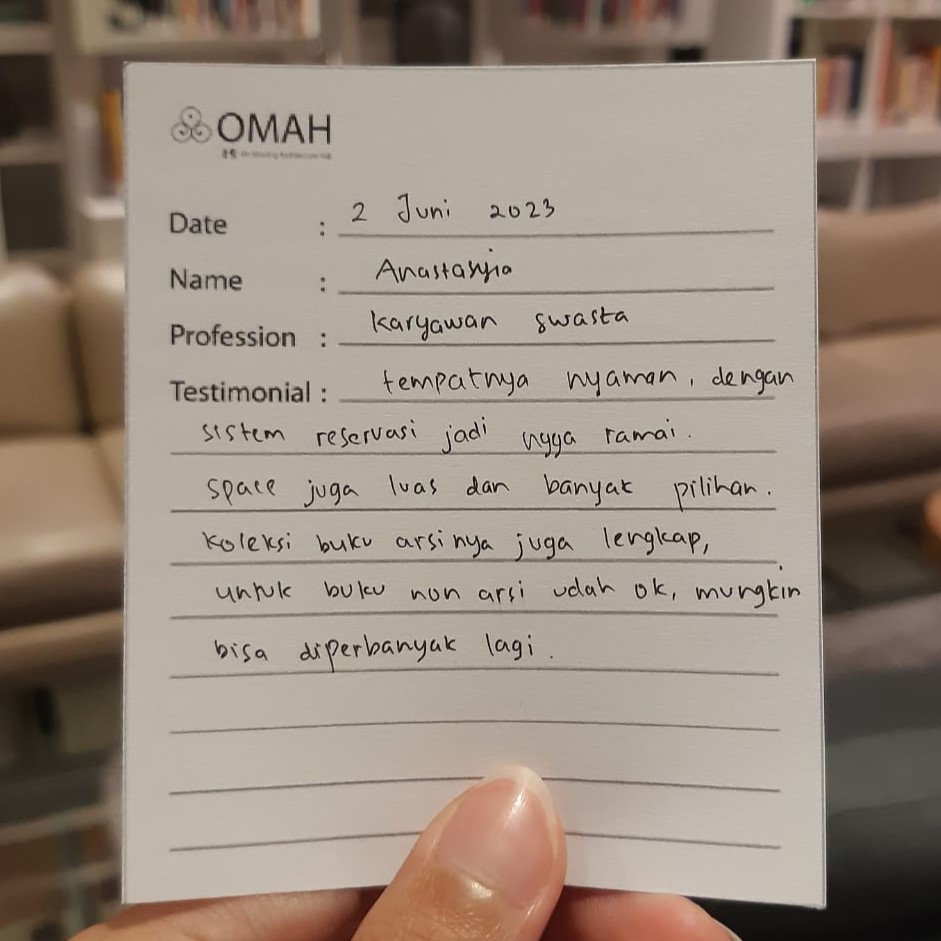 OMAH
Date : 2 Juni 2023
Name : Anastasyia
Profession : karyawan swasta
Testimonial : tempatnya nyaman, dengan
sistem reservasi jadi ngga ramai.
space juga luas dan banyak pilihan.
koleksi buku arsinya juga lengkap,
untuk buku non arsi udah ok, mungkin
bisa diperbanyak lagi.